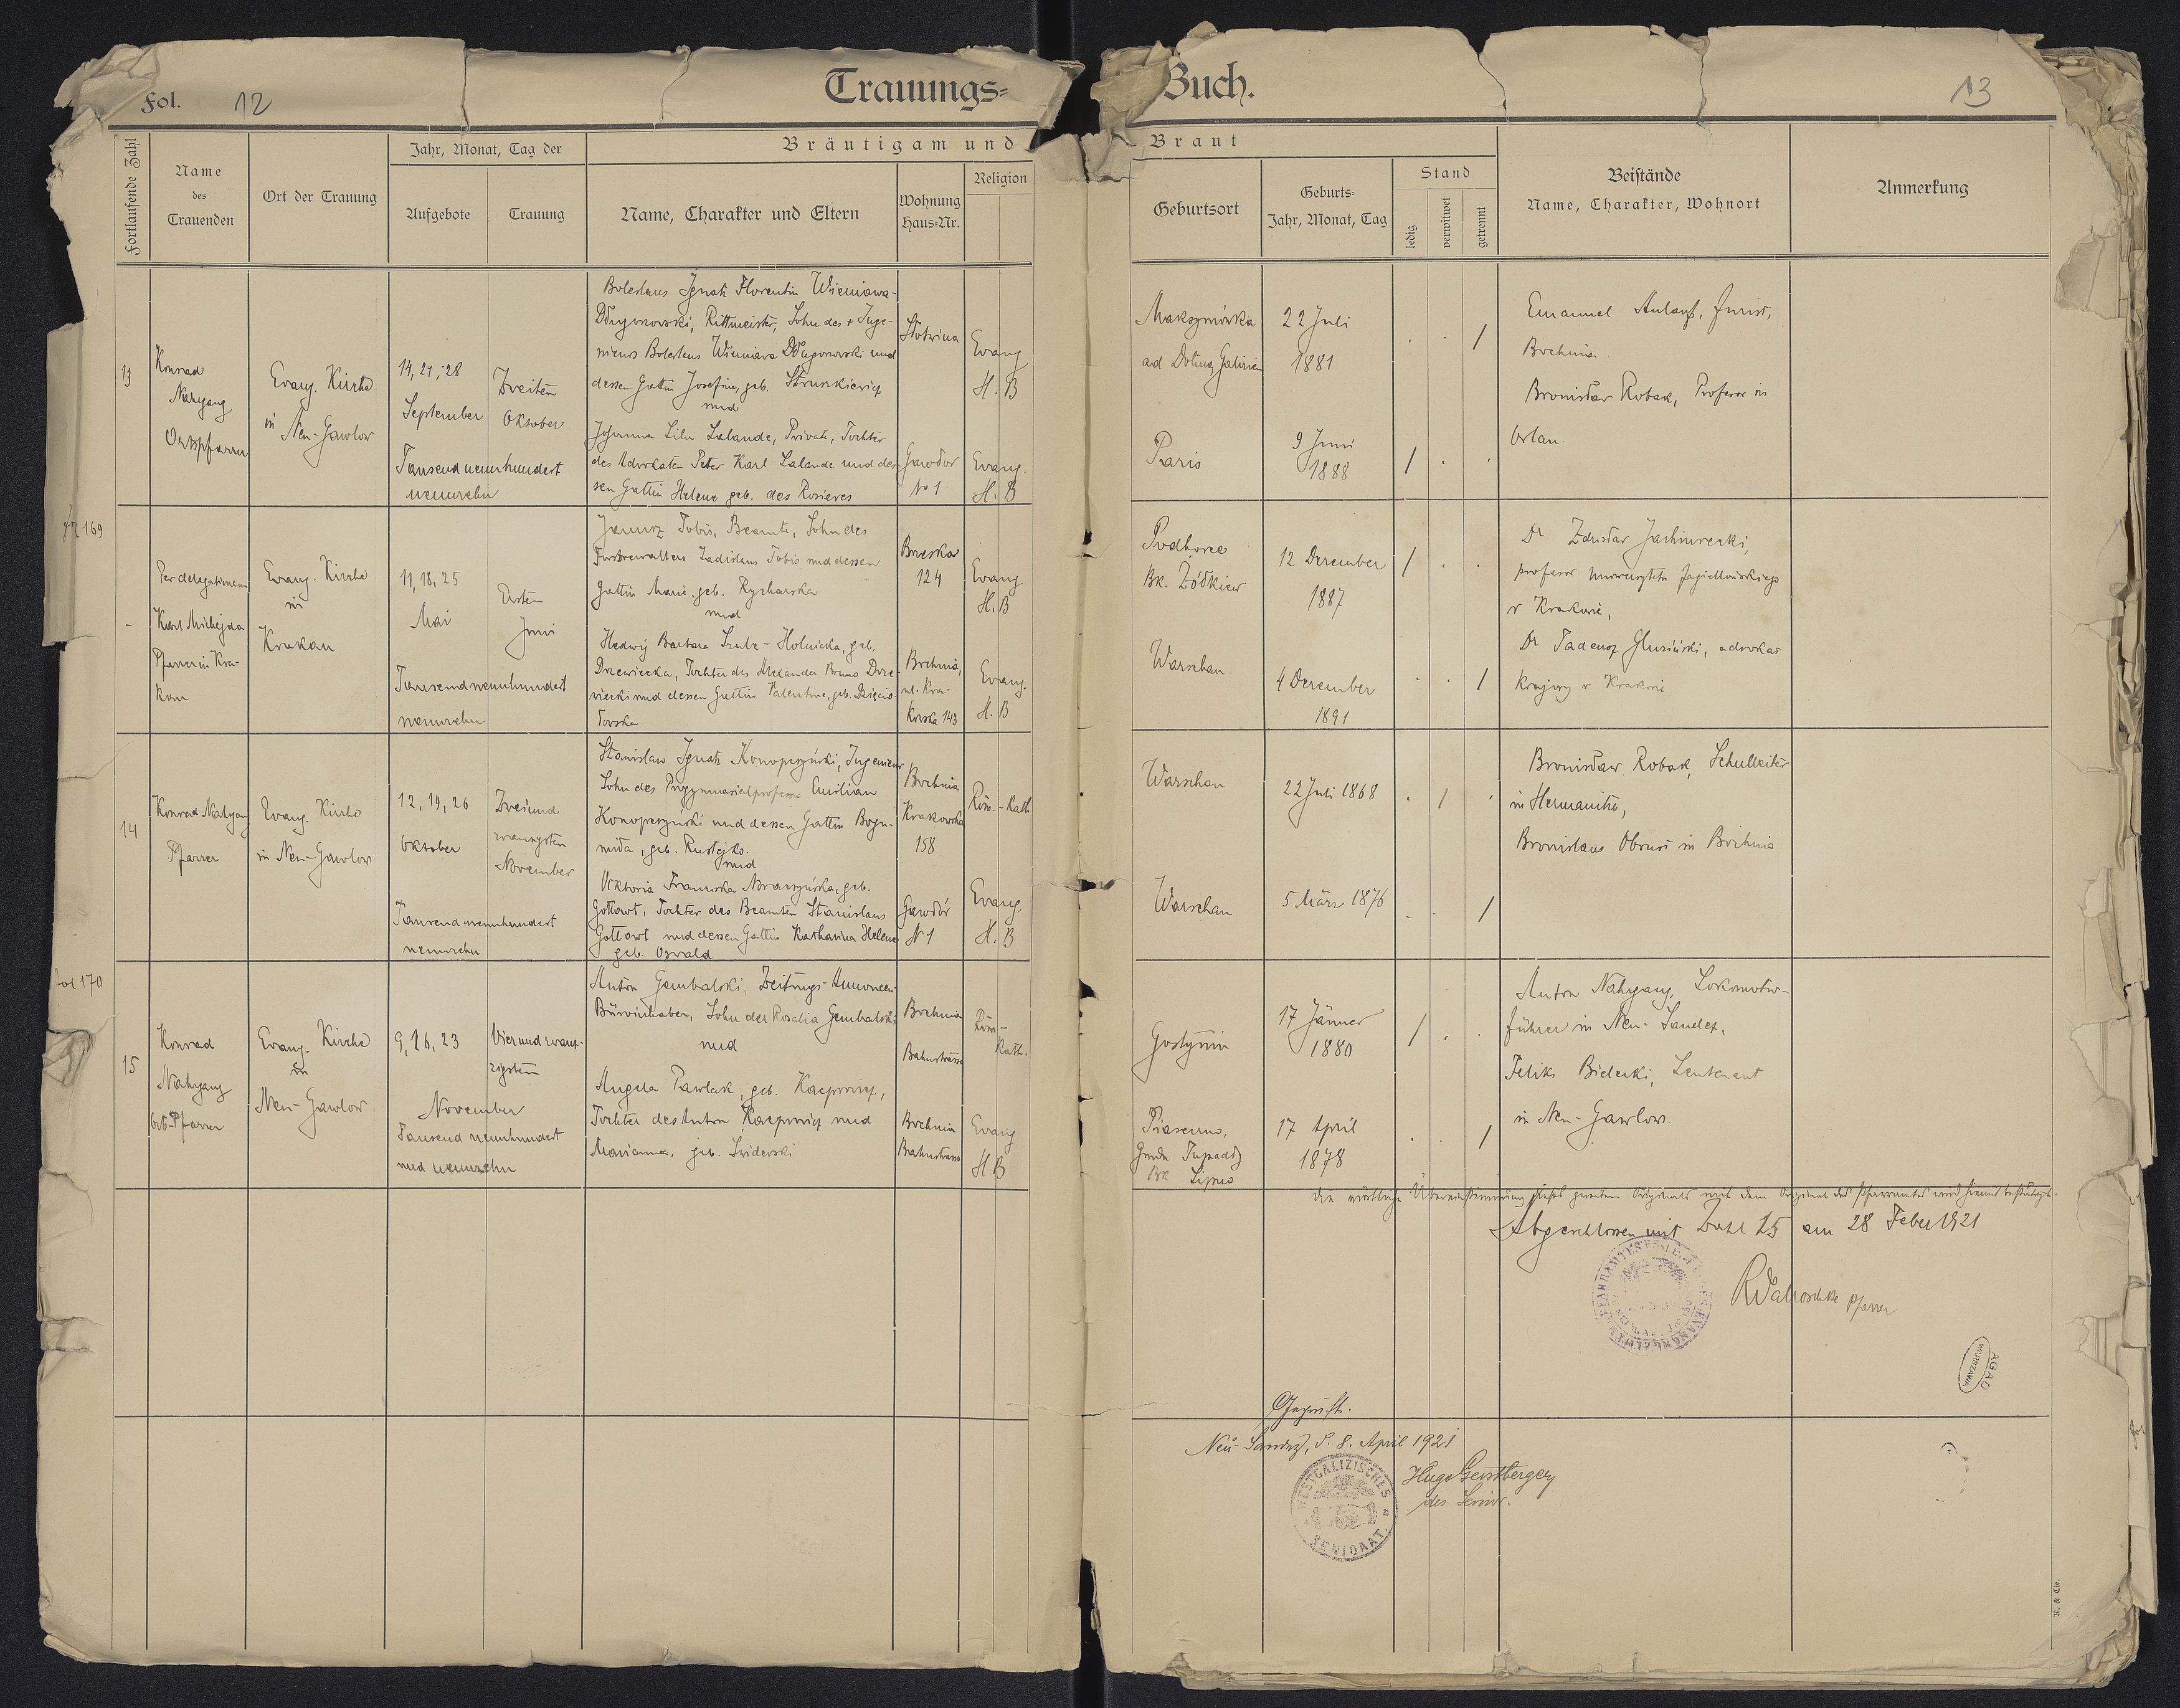 Fol. 12
Trauungs=
Buch.
13
Fortlaufende Zahl
Name
des
Trauenden
Ort der Trauung
Jahr, Monat, Tag der
Aufgebote
Trauung
Bräutigam und
Name, Charakter und Eltern
Wohnung
Haus=Nr.
Religion
Braut
Geburtsort
Geburts=
Jahr, Monat, Tag
Stand
ledig
verwitwet
getrennt
Beistände
Name, Charakter, Wohnort
Anmerkung
13
Konrad
Nahrgang
Ortspfarrer
Evang. Kirche
in Neu-Gawlow
14, 21, 28
September
Zweiten
Oktober
Tausend neunhundert
neunzehn
Boleslaus Ignatz Florentin Wieniawa-
Długoszowski, Rittmeister, Sohn des + Inge-
nieurs Boleslaus Wieniawa Długoszowski und
dessen Gattin Josefine, geb. Struszkiewicz
und
Johanna Lila Lalande, Private, Tochter
des Advokaten Peter Karl Lalande und des-
sen Gattin Helene geb. des Rosieres
Słotwina
Gawłów
No 1
Evang
H. B
Evang.
H. B
Maksymówka
ad Dolina, Galizien
22 Juli
1881
/
Paris
9 Juni
1888
/
Emanuel Aulauf, Jurist,
Bochnia
Bronisław Robak, Professor in
Orlau.
fol 169
-
Per delegationem
Karl Michejda
Pfarrer in Kra-
kau
Evang. Kirche
in
Krakau
11, 18, 25
Mai
Ersten
Juni
Tausend neunhundert
neunzehn
Janusz Tobis, Beamte, Sohn des
Forstverwalters Ladislaus Tobis und dessen
Gattin Marie, geb. Rycharska
und
Hedwig Barbara Szulc-Holnicka, geb.
Drzewiecka, Tochter des Alexander Bruno Drze-
wiecki und dessen Gattin Valentine, geb. Dzięcio-
łowska
Brzeska
124
Bochnia,
ul. Kra-
kowska 143
Evang
H. B
Evang.
H. B
Podhorce
Bk. Żółkiew
12 Dezember
1887
/
Warschau
4 Dezember
1891
/
Dr Zdzisław Jachimecki,
profesor Uniwersytetu Jagiellońskiego
w Krakowie,
Dr Tadeusz Gluziński, adwokat
krajowy w Krakowie
14
Konrad Nahrgang
Pfarrer
Evang. Kirche
in Neu-Gawlow
12, 19, 26
Oktober
Zweiund
zwanzigsten
November
Tausend neunhundert
neunzehn
Stanislaw Ignatz Konopczyński, Ingenieur
Sohn des Progymnasialprofessors Emilian
Konopczyński und dessen Gattin Bogu-
miła, geb. Rustejko.
und
Viktoria Franziska Nowaczyńska, geb.
Gottowt, Tochter des Beamten Stanislaus
Gottowt und dessen Gattin Katharina Helene
geb. Oswald
Bochnia
Krakowska
158
Gawłów
N 1
Röm.-Kath
Evang.
H. B
Warschau
22 Juli 1868
/
Warschau
5 März 1876
/
Bronisław Robak, Schulleiter
in Hermanitz,
Bronislaus Obrusi in Bochnia
fol 170
15
Konrad
Nahrgang
Orts-Pfarrer
Evang. Kirche
in
Neu-Gawlow
9, 16, 23
Vierundzwan-
zigsten
November
Tausend neunhundert
und neunzehn
Anton Gembalski, Zeitungs-Annoncen
Büroinhaber, Sohn der Rosalia Gembalski
und
Angela Pawlak, geb. Kacprowicz,
Tochter des Anton Kacprowicz und
Marianna, geb. Swiderski
Bochnia
Bahnstrasse
Bochnia
Bahnstrasse
Röm-
Kath.
Evang
H B
Gostynin
17 Jänner
1880
/
Piaseczno,
Gmde Tupadły
Bk Lipno
17 April
1878
/
Anton Nahrgang, Lokomotiv-
führer in Neu-Sandez,
Feliks Bielecki, Leutenant
in Neu-Gawlow.
Die wörtliche Übereinstimmung dieses zweiten Originals mit dem Original des Pfarramtes wird hiermit bestätigt.
Abgeschlossen mit Zahl 15 am 28 Feber 1921
RWalloschke Pfarrer
AGAD
WARSZAWA
Geprüft.
Neu-Sandez, d. 8. April 1921
Hugo Gerstberger
des Senior.
WESTGALIZISCHES
SENIORAT.
K. & Cie.